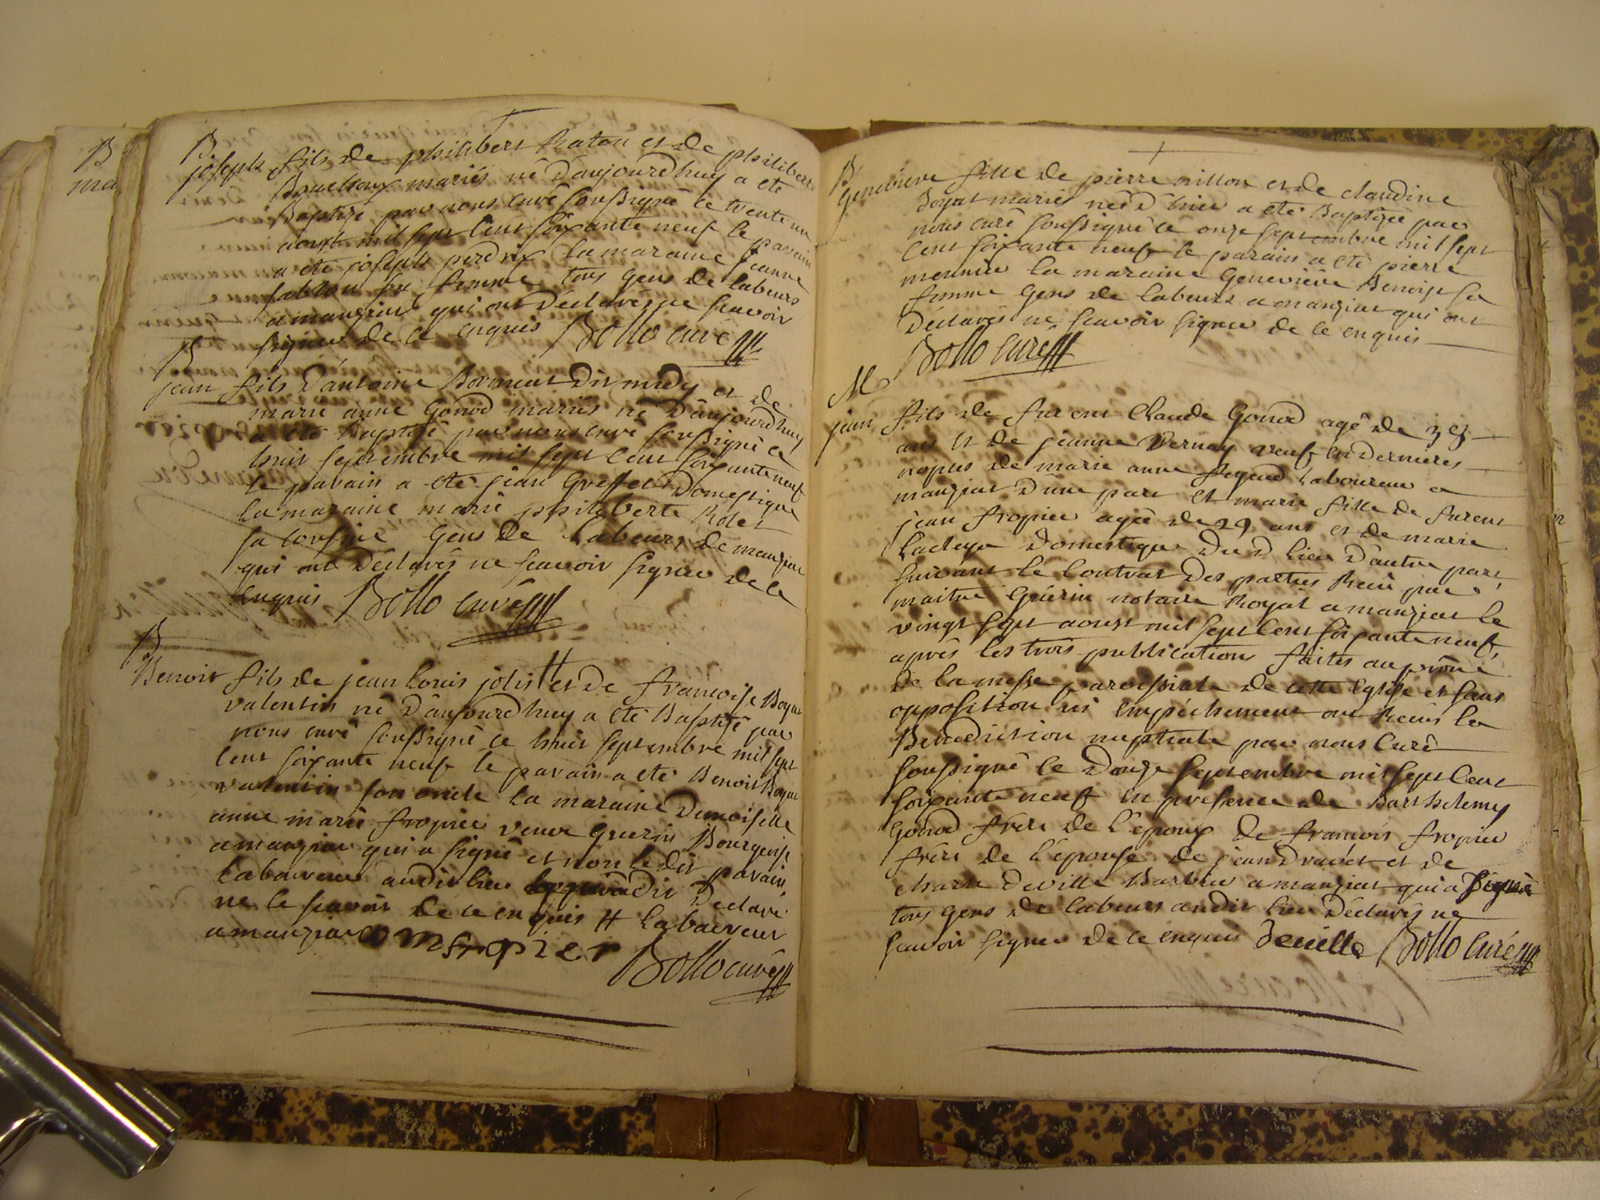 B
ma
B
joseph fils de philibert Raton et de philiberte
Bouchoux mariés né d'aujourdhuy a eté
Baptisé par nous curé soussigné ce trente un
aoust mil sept cent soixante neuf le parain
a eté joseph perdrix la maraine jeanne
sablon sa femme tous gens de labeurs
a manziat qui ont declarés ne scavoir
signer de ce enquis Bollo curé
B
jean fils d'antoine Borment dit midy et de
marie anne Gonod mariés né d'aujourdhuy
a eté Baptisé par nous curé soussigné ce
huit septembre mil sept cent soixante neuf
le parain a eté jean Greffet Domestique
la maraine marie philiberte Rolet
sa cousine Gens de Labeurs de manziat
qui ont declarés ne scavoir signer de ce
enquis Bollo curé
B
Benoit fils de jean louis jolis et de francoise Boyat
valentin né d'aujourdhuy a eté Baptisé par
nous curé soussigné ce huit septembre mil sept
cent soixante neuf le parain a eté Benoit Boyat
valentin son oncle la maraine Demoiselle
anne marie fropier veuve Guerin Bourgeoise
a manziat qui a signé et non le dit parain
laboureur audit lieu dit Declaré
ne le scavoir de ce enquis # laboureur
a manziat a m fropier
Bollo curé
B
Genevieve fille de pierre nillon et de claudine
Boyat mariés née d hier a eté Baptisée par
nous curé soussigné ce onze septembre mil sept
cent soixante neuf le parain a eté pierre
meunier la maraine Genevieve Benoist sa
femme Gens de labeurs a manziat qui ont
Declarés ne scavoir signer de ce enquis
Bollo curé
M
jean fils de furent Claude Gonod agé de
ans et de jeanne Vernay veuf en dernieres
nopces de marie anne laboureur a
manziat d'une part et marie fille de furent
jean fropier agée de 29 ans et de marie
Domestique du d lieu d'autre part
suivant le contrat des parties Recu par
maitre Guerin notaire Royal a manziat le
vingt sept aoust mil sept cent soixante neuf
après les trois publications faites au prône
de la messe paroissiale de cette Eglise et sans
opposition ni empechement ont Recus la
Benediction nuptiale par nous Curé
soussigné le Douze septembre mil sept cent
soixante neuf en presence de Barthelemy
Gonod frere de l'epoux de francois fropier
frere de l'epouse de jean Dravet et de
Deville Barbier a manziat qui a signé
tous gens de labeurs audit lieu Déclarés ne
scavoir signer de ce enquis Deville Bollo Curé